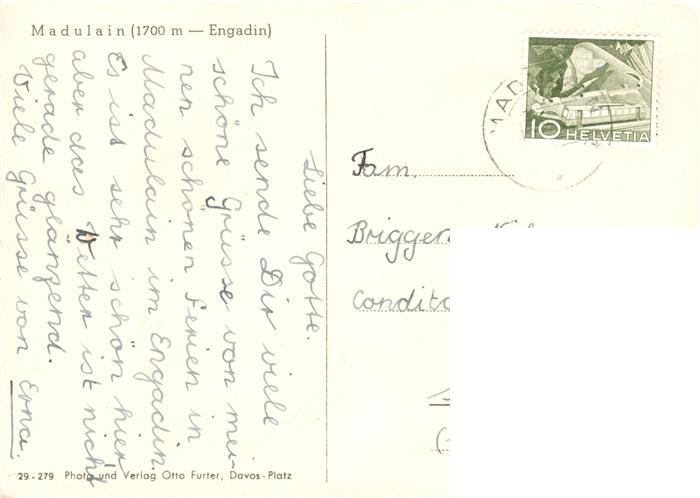 Madulain (1700 m — Engadin)
Liebe Gotte.
Ich sende Dir viele
schöne Grüsse von mei-
nen schönen Ferien in
Madulain im Engadin.
Es ist sehr schön hier
aber dces Wetter ist nicht
gerade glänzend.
Viele Grüsse von Erna.
29 - 279 Photo und Verlag Otto Furter, Davos - Platz
MAD
10 HELVETIA
Fam.
Briggen
Condito